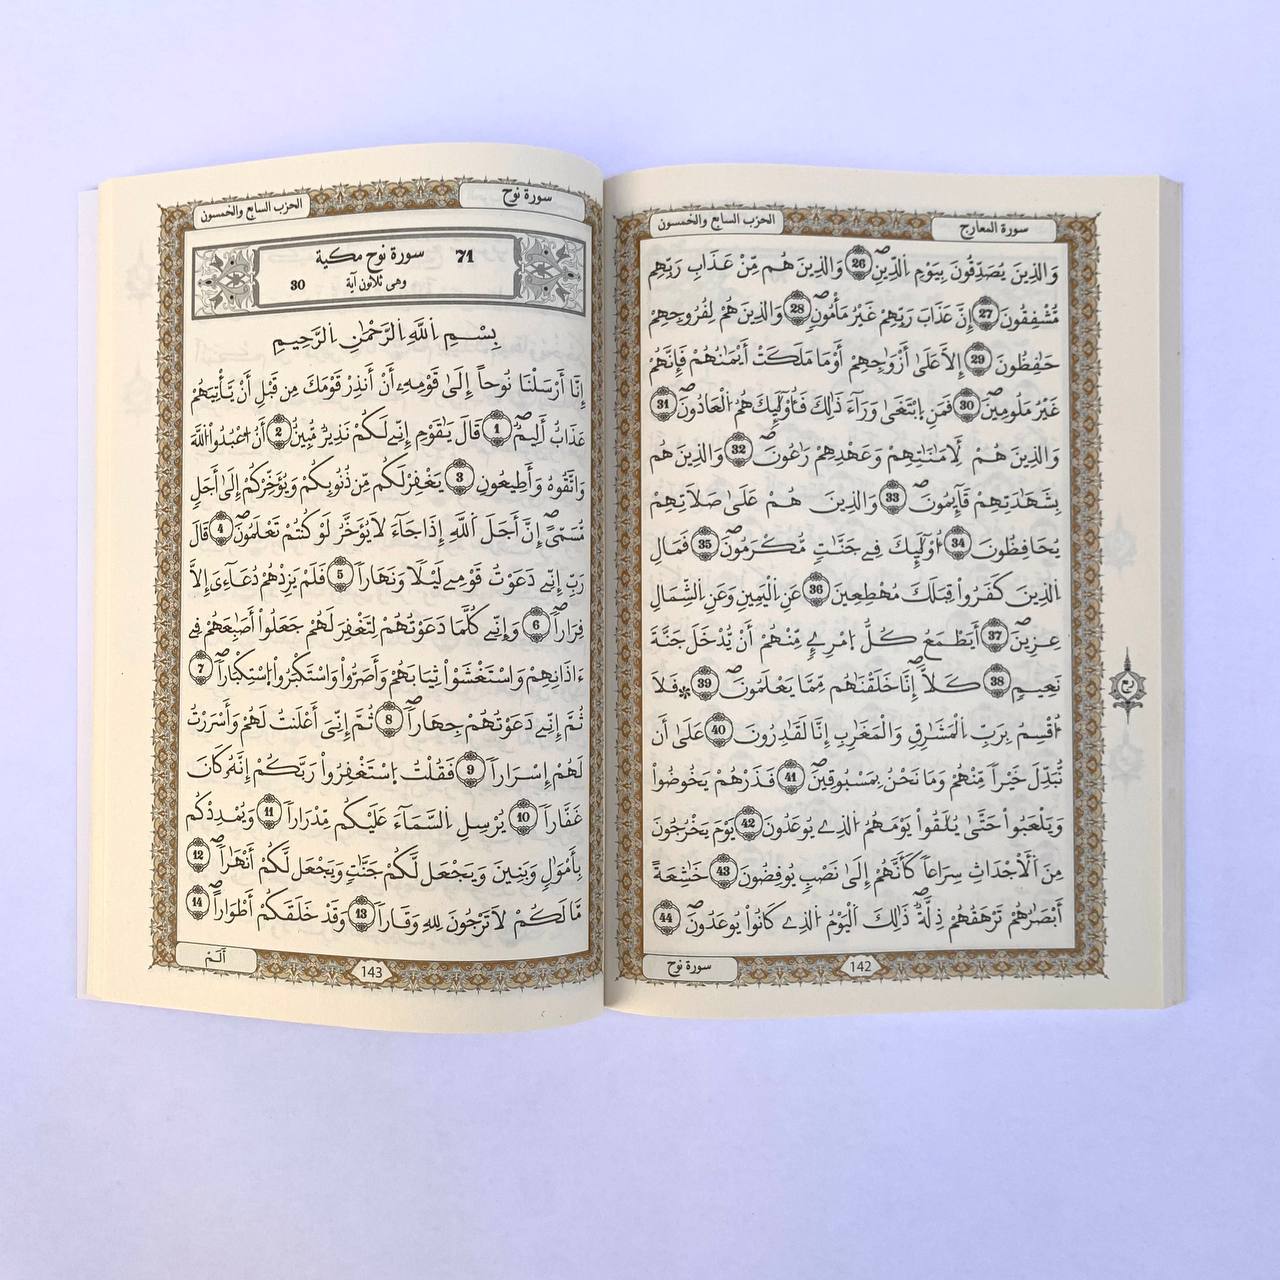 سورة المعارج
الحزب السابع والخمسون
وَالذِينَ يُصَدِّقُونَ بِيَوْمِ اِلدِّينِ 26 وَالذِينَ هُم مِّنْ عَذَابِ رَبِّهِم
مُّشْفِقُونَ 27 إِنَّ عَذَابَ رَبِّهِمْ غَيْرُ مَأْمُونٍ 28 وَالذِينَ هُمْ لِفُرُوجِهِمْ
حَٰفِظُونَ 29 إِلاَّ عَلَىٰ أَزْوَٰجِهِمْ أَوْ مَا مَلَكَتْ أَيْمَٰنُهُمْ فَإِنَّهُمْ
غَيْرُ مَلُومِينَ 30 فَمَنِ اِبْتَغَىٰ وَرَآءَ ذَٰلِكَ فَأُوْلَٰٓئِكَ هُمُ الْعَادُونَ 31
وَالذِينَ هُمْ لِأَمَٰنَٰتِهِمْ وَعَهْدِهِمْ رَٰعُونَ 32 وَالذِينَ هُم
بِشَهَٰدَتِهِمْ قَآئِمُونَ 33 وَالذِينَ هُمْ عَلَىٰ صَلَاتِهِمْ
يُحَافِظُونَ 34 أُوْلَٰٓئِكَ فِے جَنَّٰتٍ مُّكْرَمُونَ 35 فَمَالِ
اِلذِينَ كَفَرُواْ قِبَلَكَ مُهْطِعِينَ 36 عَنِ اِلْيَمِينِ وَعَنِ اِلشِّمَالِ
عِزِينَ 37 أَيَطْمَعُ كُلُّ اُمْرِےٕ مِّنْهُمْ أَنْ يُّدْخَلَ جَنَّةَ
نَعِيمٍ 38 كَلَّآ إِنَّا خَلَقْنَٰهُم مِّمَّا يَعْلَمُونَ 39 فَلَآ
أُقْسِمُ بِرَبِّ اِلْمَشَٰرِقِ وَالْمَغَٰرِبِ إِنَّا لَقَٰدِرُونَ 40 عَلَىٰ أَن
نُّبَدِّلَ خَيْراً مِّنْهُمْ وَمَا نَحْنُ بِمَسْبُوقِينَ 41 فَذَرْهُمْ يَخُوضُواْ
وَيَلْعَبُواْ حَتَّىٰ يُلَٰقُواْ يَوْمَهُمُ اُلذِے يُوعَدُونَ 42 يَوْمَ يَخْرُجُونَ
مِنَ اَلْأَجْدَاثِ سِرَاعاً كَأَنَّهُمْ إِلَىٰ نَصْبٍ يُوفِضُونَ 43 خَٰشِعَةً
أَبْصَٰرُهُمْ تَرْهَقُهُمْ ذِلَّةٌ ذَٰلِكَ اَلْيَوْمُ اُلذِے كَانُواْ يُوعَدُونَ 44
ربع
142
سورة نوح
سورة نوح
الحزب السابع والخمسون
71 سورة نوح مكية
وهى ثلاثون آية 30
بِسْمِ اِللَّهِ اِلرَّحْمَٰنِ اِلرَّحِيمِ
إِنَّآ أَرْسَلْنَا نُوحاً إِلَىٰ قَوْمِهِۦٓ أَنْ أَنذِرْ قَوْمَكَ مِن قَبْلِ أَنْ يَّأْتِيَهُمْ
عَذَابٌ أَلِيمٌ 1 قَالَ يَٰقَوْمِ إِنِّے لَكُمْ نَذِيرٌ مُّبِينٌ 2 أَنُ اُعْبُدُواْ اُللَّهَ
وَاتَّقُوهُ وَأَطِيعُونِ 3 يَغْفِرْ لَكُم مِّن ذُنُوبِكُمْ وَيُؤَخِّرْكُمْ إِلَىٰ أَجَلٍ
مُّسَمّىً إِنَّ أَجَلَ اَللَّهِ إِذَا جَآءَ لَا يُؤَخَّرُ لَوْ كُنتُمْ تَعْلَمُونَ 4 قَالَ
رَبِّ إِنِّے دَعَوْتُ قَوْمِے لَيْلًا وَنَهَاراً 5 فَلَمْ يَزِدْهُمْ دُعَآءِيَ إِلَّا
فِرَاراً 6 وَإِنِّے كُلَّمَا دَعَوْتُهُمْ لِتَغْفِرَ لَهُمْ جَعَلُواْ أَصَٰبِعَهُمْ فِےٓ
ءَاذَانِهِمْ وَاسْتَغْشَوْاْ ثِيَابَهُمْ وَأَصَرُّواْ وَاسْتَكْبَرُواْ اُسْتِكْبَاراً 7
ثُمَّ إِنِّے دَعَوْتُهُمْ جِهَاراً 8 ثُمَّ إِنِّيَ أَعْلَنتُ لَهُمْ وَأَسْرَرْتُ
لَهُمْ إِسْرَاراً 9 فَقُلْتُ اُسْتَغْفِرُواْ رَبَّكُمْ إِنَّهُۥ كَانَ
غَفَّاراً 10 يُرْسِلِ اِلسَّمَآءَ عَلَيْكُم مِّدْرَاراً 11 وَيُمْدِدْكُم
بِأَمْوَٰلٍ وَبَنِينَ وَيَجْعَل لَّكُمْ جَنَّٰتٍ وَيَجْعَل لَّكُمْ أَنْهَٰراً 12
مَّا لَكُمْ لَا تَرْجُونَ لِلهِ وَقَاراً 13 وَقَدْ خَلَقَكُمْ أَطْوَاراً 14
143
أَلَمْ